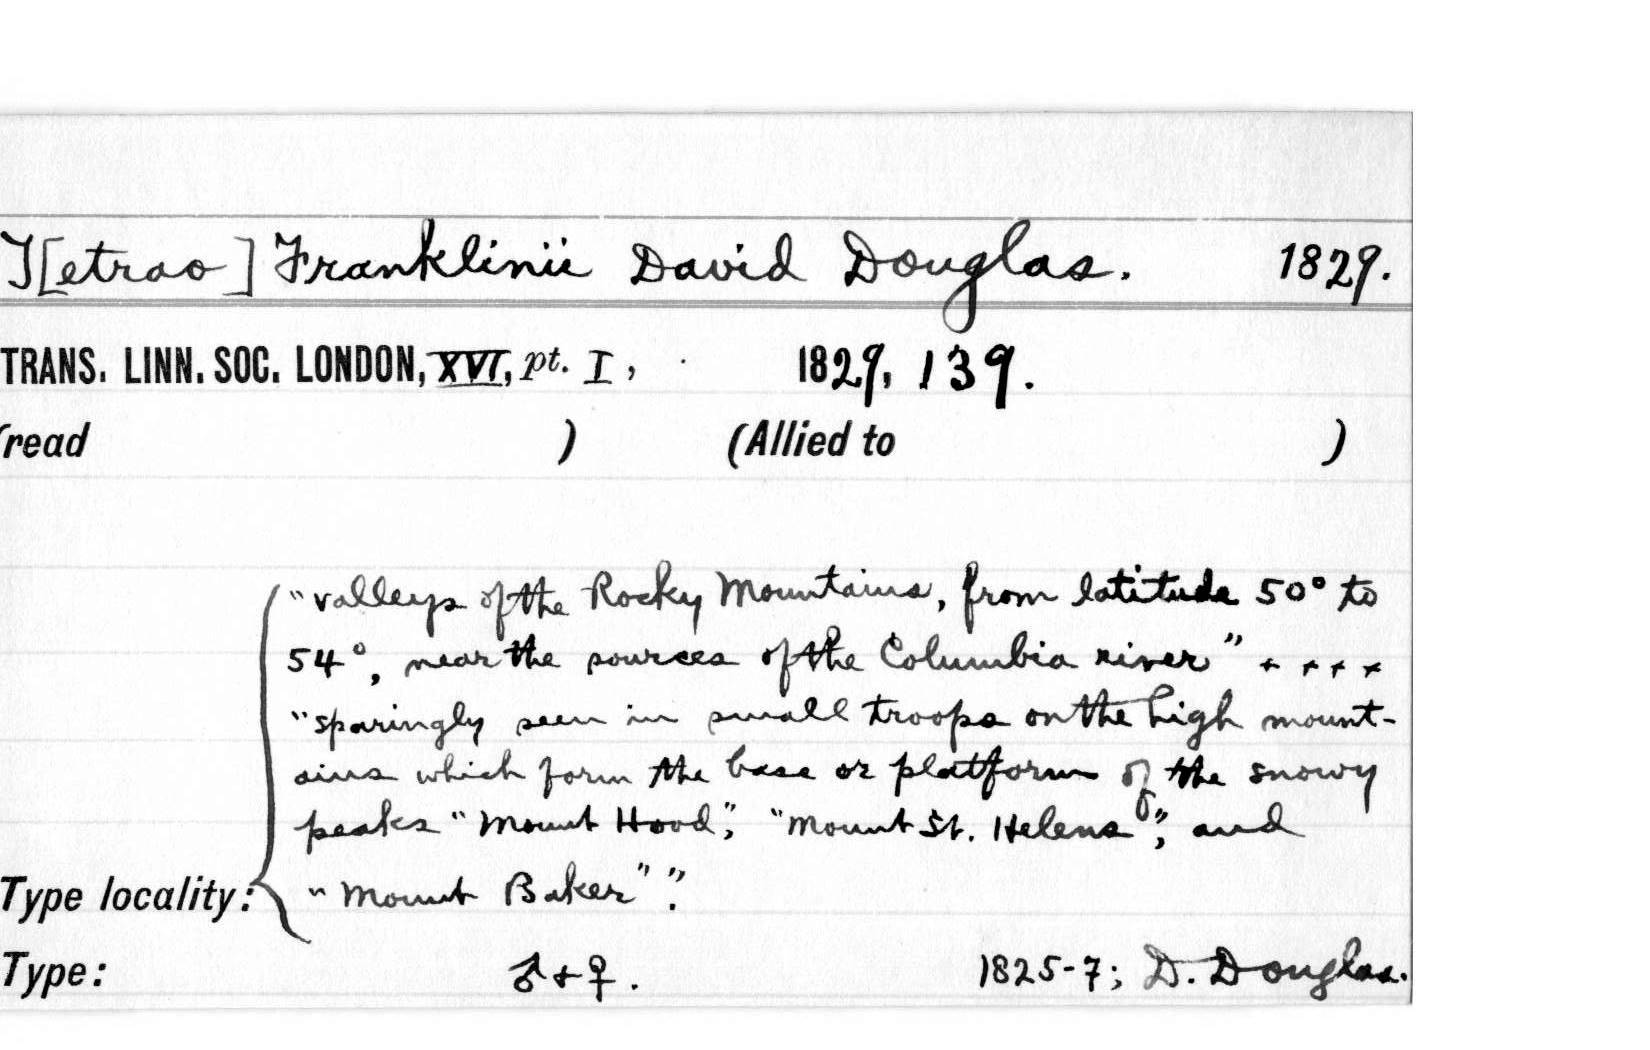 T[etrao] Franklinii David Douglas. 1829.
TRANS. LINN. SOC. LONDON, XVI, pt. I, 1829, 139.
(read ) (Allied to )
"valleys of the Rocky Mountains, from latitude 50° to
54°, near the sources of the Columbia river" × × × ×
"sparingly seen in small troops on the high mount-
ains which form the base or platform of the snowy
peaks "Mount Hood," "Mount St. Helens", and
Type locality: "Mount Baker"".
Type: ♂ + ♀. 1825-7; D. Douglas.